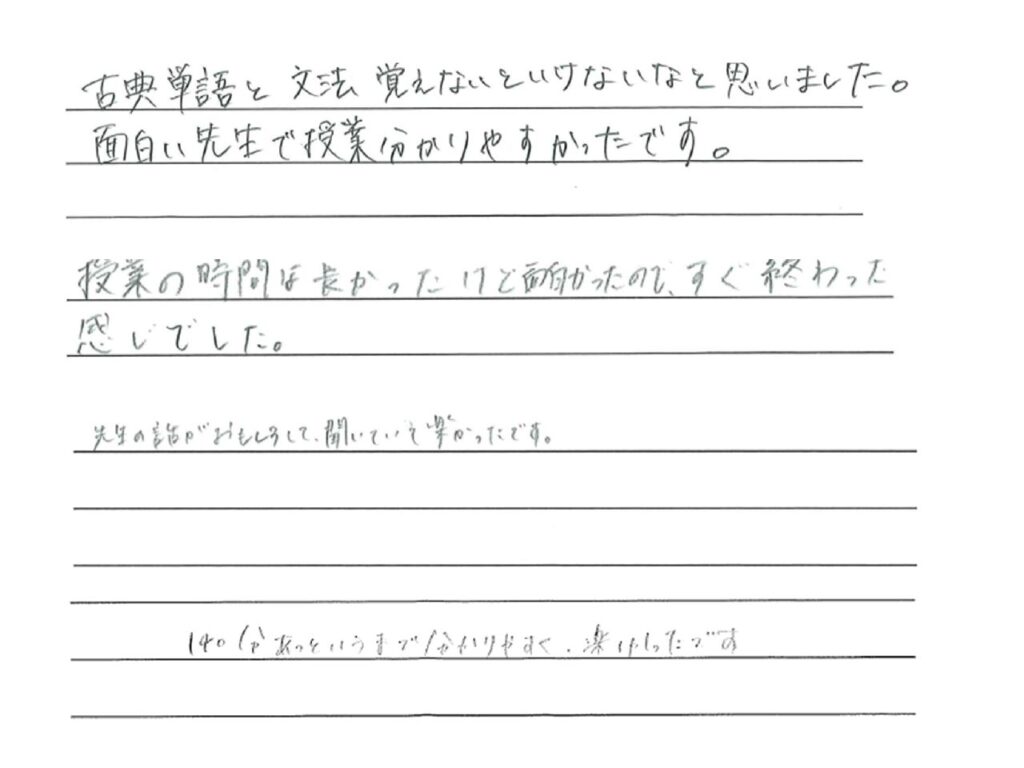 古典単語と文法覚えないといけないなと思いました。
面白い先生で授業分かりやすかったです。
授業の時間は長かったけど面白かったので、すぐ終わった
感じでした。
先生の話がおもしろくて、聞いていて楽かったです。
140分あっというまで分かりやすく、楽しかったです